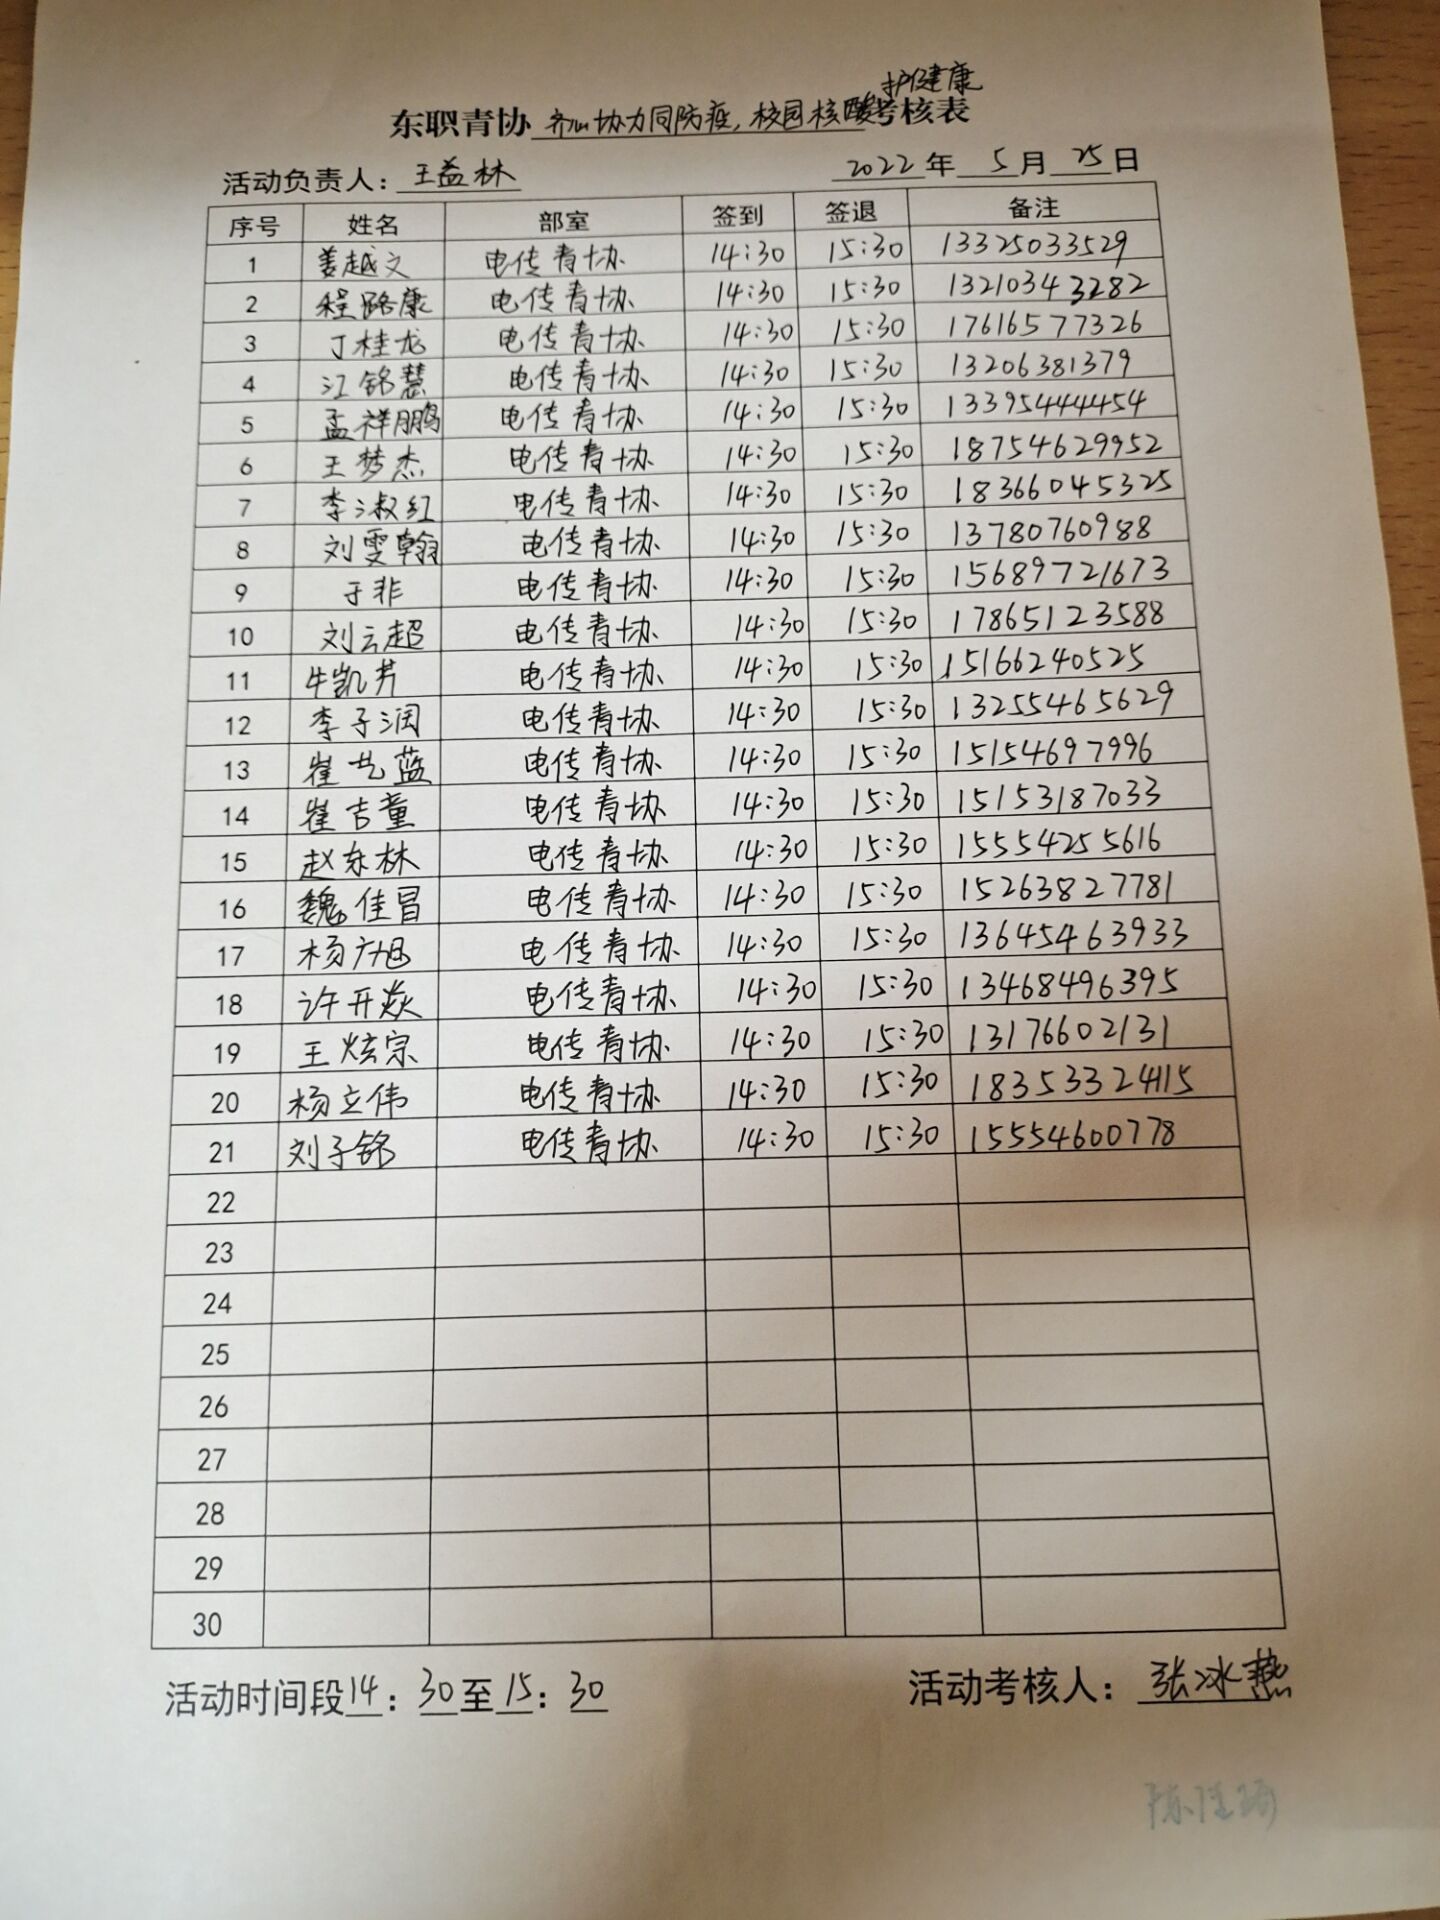 护健康
东职青协 齐心协力同防疫，校园核酸考核表
活动负责人：王益林 2022年5月25日
序号 姓名 部室 签到 签退 备注
1 姜越文 电传青协 14:30 15:30 13325033529
2 程路康 电传青协 14:30 15:30 13210343282
3 丁桂龙 电传青协 14:30 15:30 17616577326
4 江铭慧 电传青协 14:30 15:30 13206381379
5 孟祥鹏 电传青协 14:30 15:30 13395444454
6 王梦杰 电传青协 14:30 15:30 18754629952
7 李淑红 电传青协 14:30 15:30 18366045325
8 刘雯翰 电传青协 14:30 15:30 13780760988
9 于非 电传青协 14:30 15:30 15689721673
10 刘云超 电传青协 14:30 15:30 17865123588
11 牛凯芹 电传青协 14:30 15:30 15166240525
12 李子润 电传青协 14:30 15:30 13255465629
13 崔艺蓝 电传青协 14:30 15:30 15154697996
14 崔吉童 电传青协 14:30 15:30 15153187033
15 赵东林 电传青协 14:30 15:30 15554255616
16 魏佳冒 电传青协 14:30 15:30 15263827781
17 杨旭 电传青协 14:30 15:30 13645463933
18 许开焱 电传青协 14:30 15:30 13468496395
19 王炫宗 电传青协 14:30 15:30 13176602131
20 杨立伟 电传青协 14:30 15:30 18353324115
21 刘子铭 电传青协 14:30 15:30 15554600778
22
23
24
25
26
27
28
29
30
活动时间段14：30至15：30 活动考核人：张冰燕